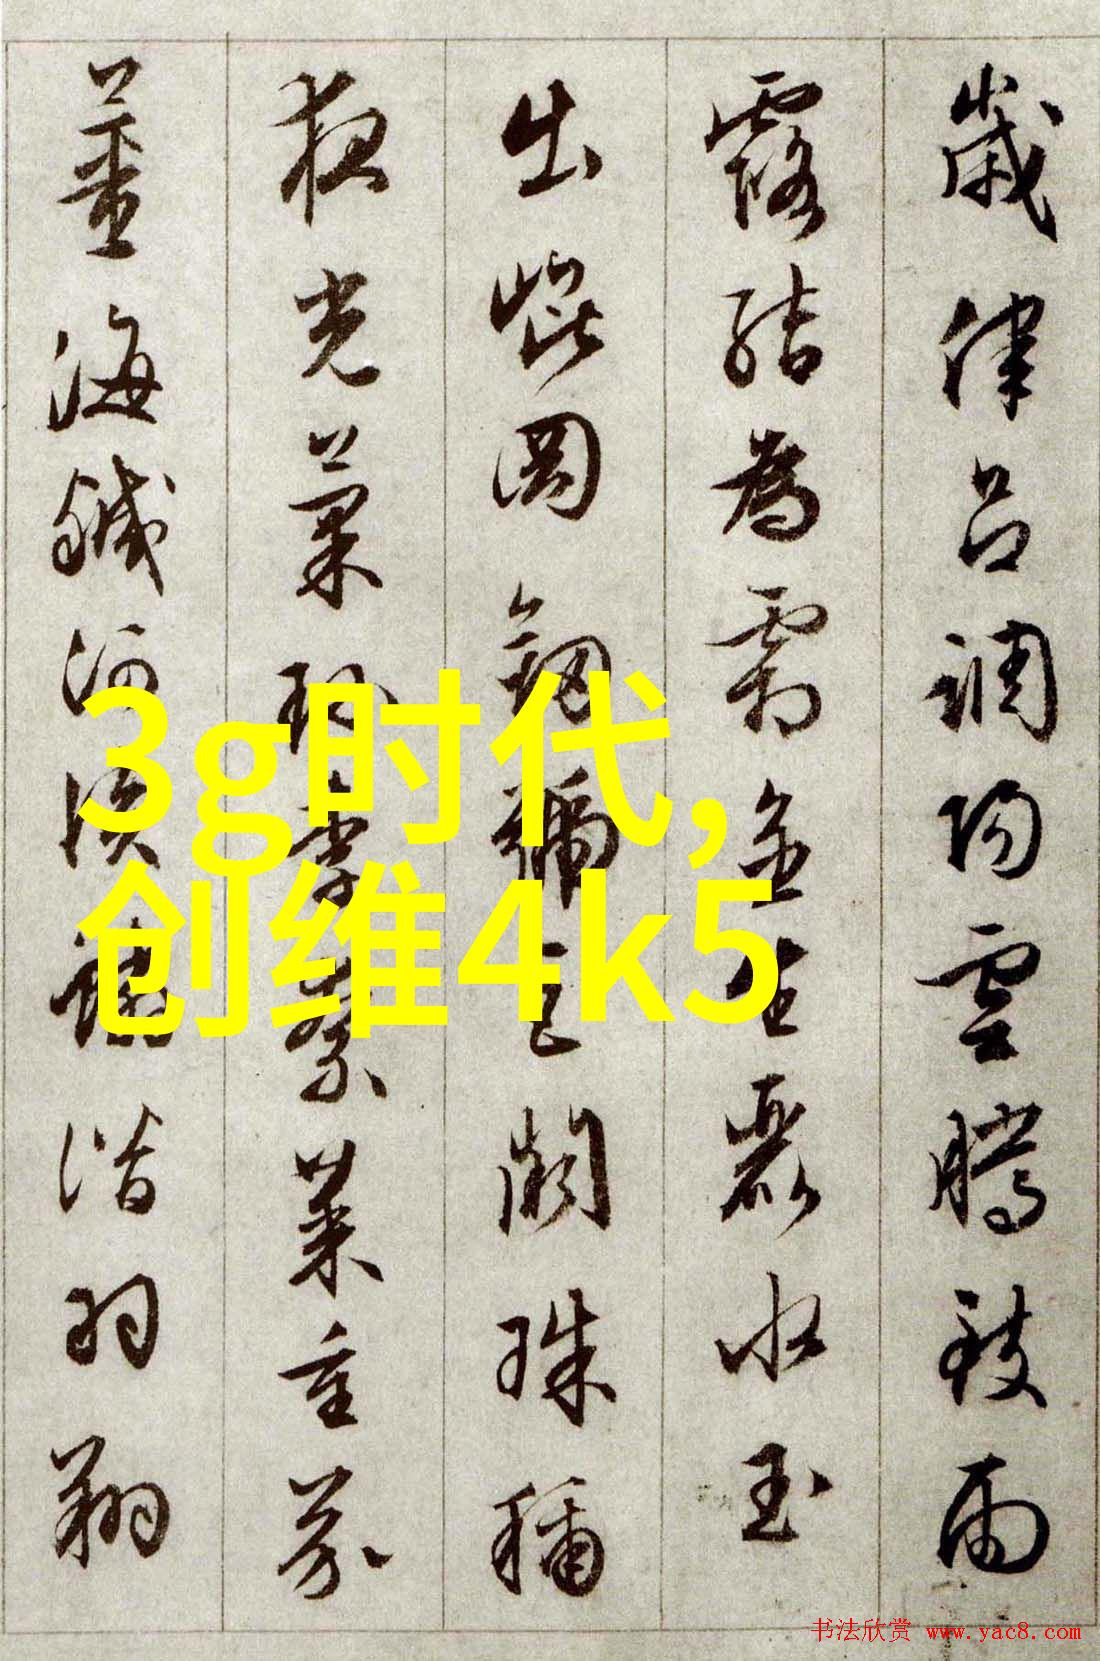 歲律呂調陽雲騰致雨
露結為霜金生麗水玉
出崑岡劍號巨闕珠稱
夜光菓珍李柰菜重芥
薑海鹹河淡鱗潛羽翔
3g时代,
创维4k5
书法欣赏 www.yac8.com